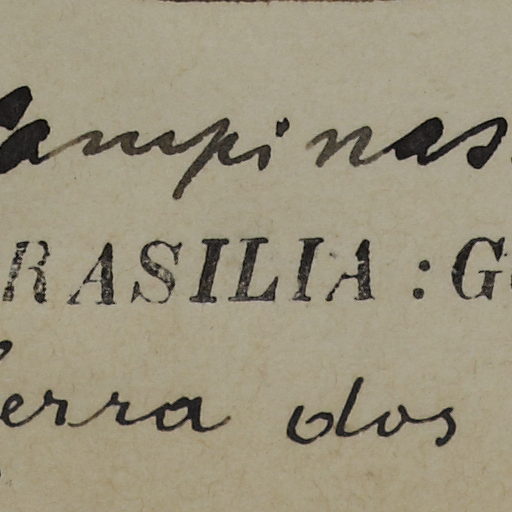 Campinas.
BRASILIA : G
Serra dos